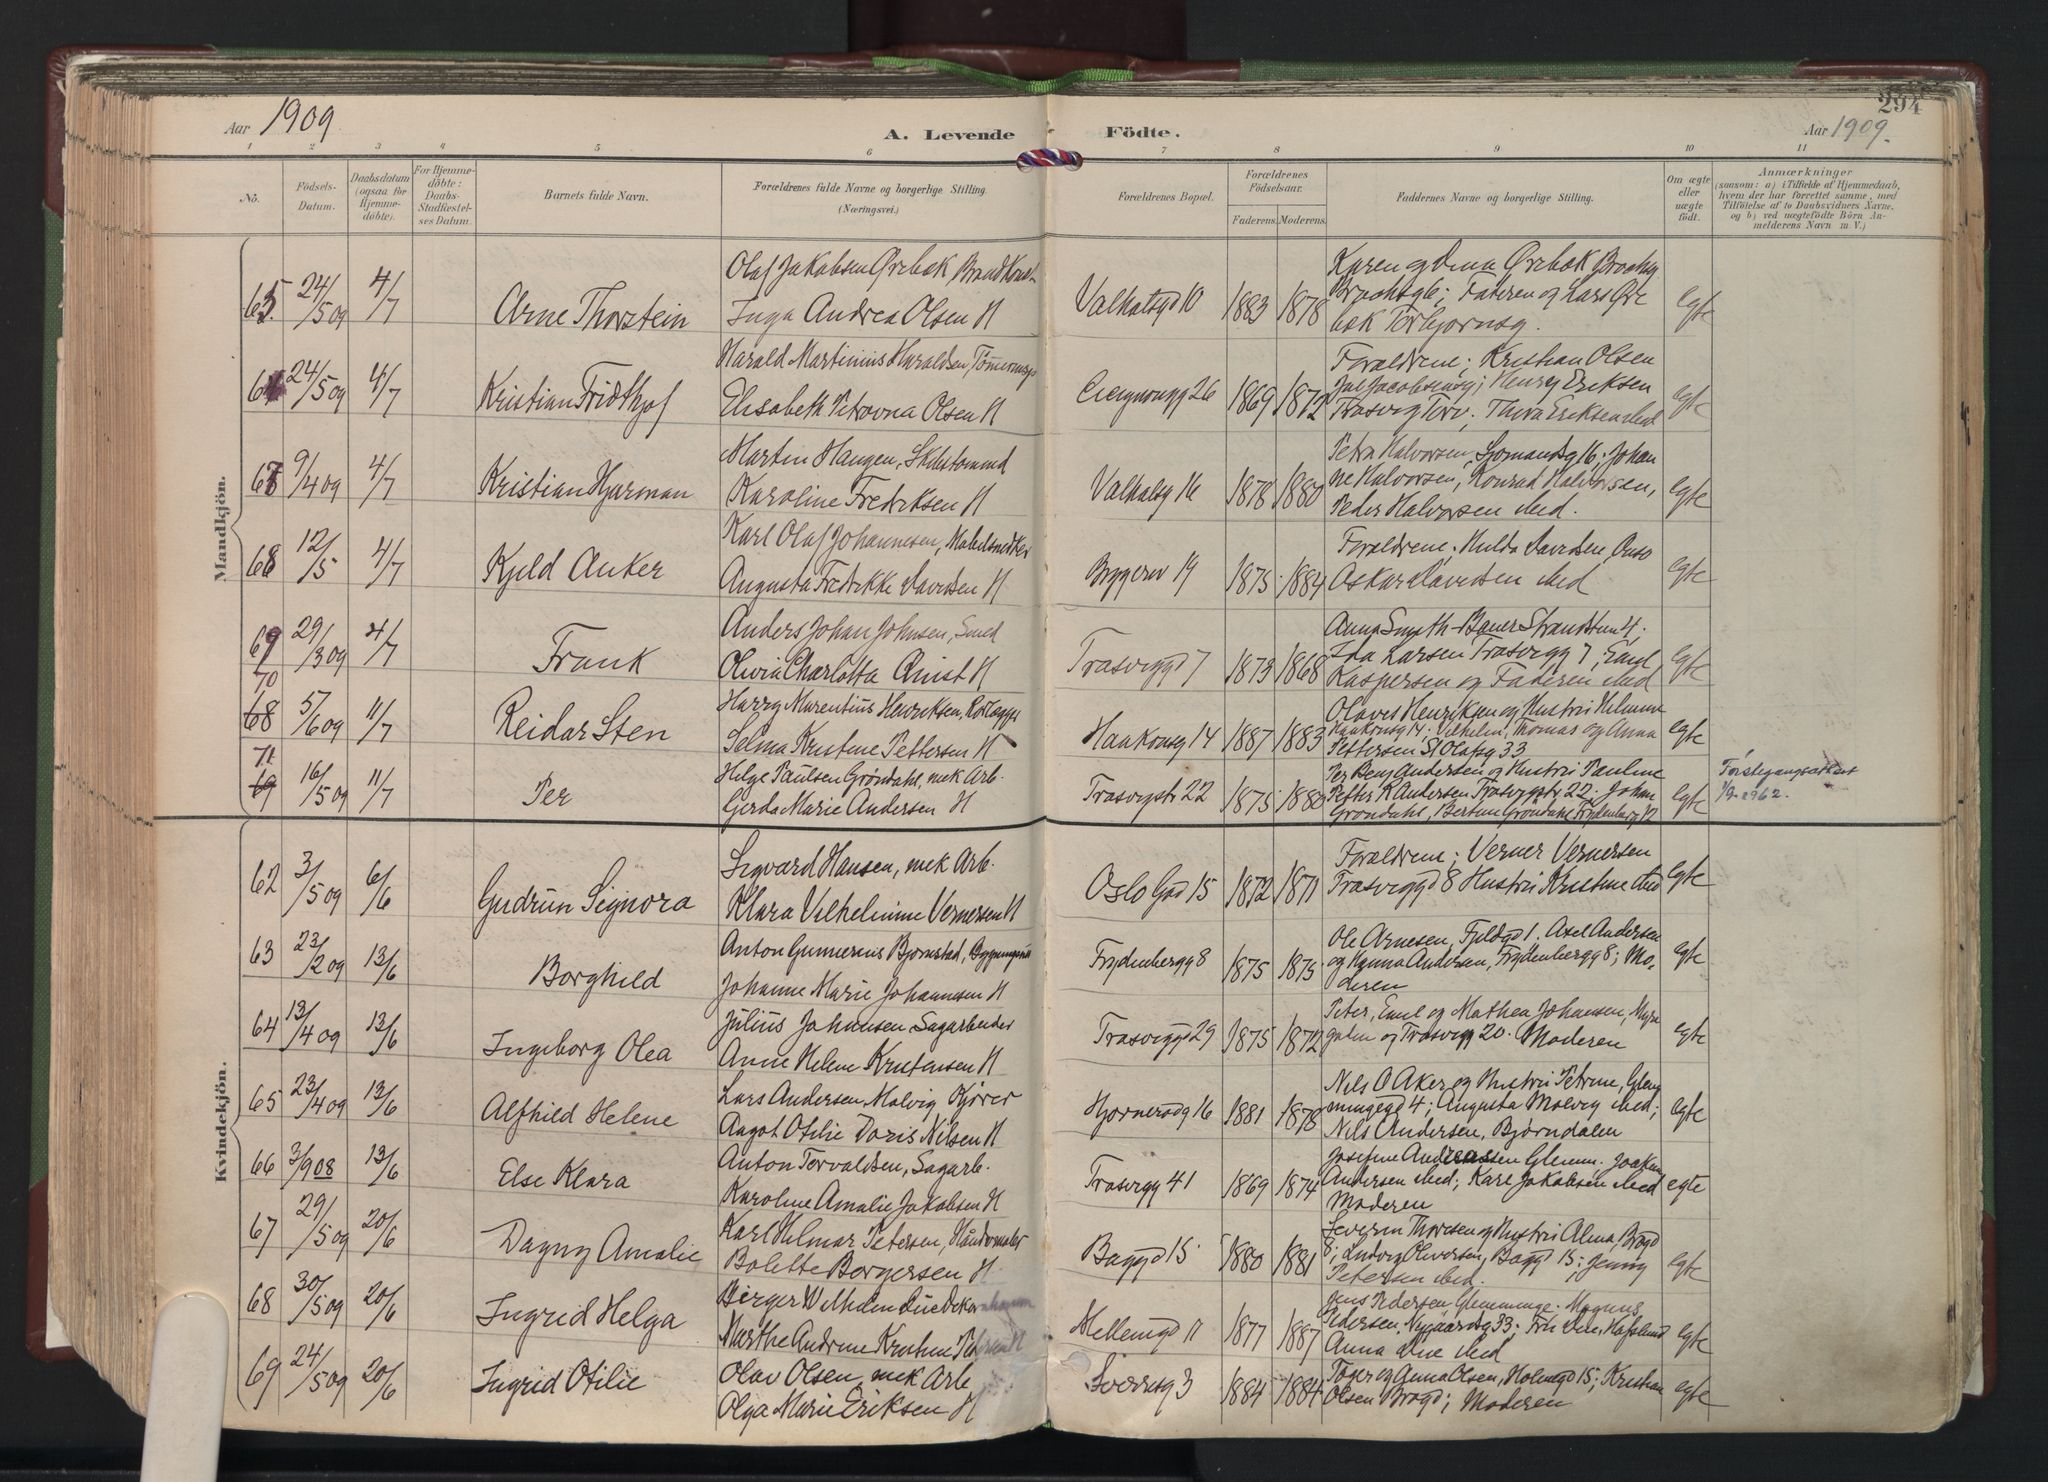 294
Aar 1909
A. Levende
Födte.
Aar 1909.
1 2 3 4 5 6 7 8 9 10 11
No.
Födsels-
Datum.
Daabsdatum
(ogsaa för
Hjemme-
döbte).
For Hjemme-
döbte:
Daabs-
Stadfæstel-
ses Datum.
Barnets fulde Navn.
Forældrenes fulde Navne og borgerlige Stilling.
(Næringsvei.)
Forældrenes Bopæl.
Forældrenes
Födselsaar.
Faderens.
Moderens.
Faddernes Navne og borgerlige Stilling.
Om ægte
eller
uægte
födt.
Anmærkninger
(saasom: a) i Tilfælde af Hjemmedaab,
hvem der har forrettet samme, med
Tilföielse af to Daabsvidners Navne.
og b) ved uægtefödte Börn An-
melderens Navn m. V.)
Mandkjön.
65. 24/5 09 4/7 Arne Thorstein
Olaf Jakobsen Ørebæk
Inga Andrea Olsen H
1883 1878
Karen og Ørebæk
Faderen og Lars Øre
bæk egte
24/5 09 4/7 Kristian Fridthjof
Harald Martinius Haraldsen,
Elisabeth Petrovna Olsen H
26 1869 1872
Forældrene; Kristian Olsen
Henry Eriksen
Thora Eriksen ibid egte
67 9/4 09 4/7 Kristian Hjarman
Martin Haugen,
Karoline Fredriksen H
Valhalsg 16 1878 1880
Petra Halvorsen, Sjomandsg 16; Johan
ne Halvorsen, Konrad Halvorsen,
Peder Halvorsen ibid. egte
68 12/5 4/7 Kjeld Anker
Karl Olaf Johannesen, Mobelsnedker
Augusta Fredrikke Davidsen H
19 1875 1884
Forældrene; Hulda Davidsen,
Oskar Davidsen ibid egte
69 29/3 09 4/7 Frank
Anders Johan Johnsen, Smed
Olivia Charlotta Quist H
Trasvigg 7 1873 1868
Anna Smyth-Bauer
Ida Larsen Trasvigg 7; Emil
Kaspersen og Faderen ibid egte
70
68 5/6 09 11/7 Reidar Sten
Harry Marentius Henriksen,
Selma Kristine Pettersen H
Haakonsg 14 1887 1883
Olaves Henriksen og Hustru
Haakonsg 14; Vilhelm, Thomas og Anna
Pettersen St Olafsg 33 egte
71
69 16/5 09 11/7 Per
Helge Paulsen Gröndahl, mek Arb.
Gerda Marie Andersen H
Trasvigstr 22 1875 1880
Per Benj Andersen og Hustru Pauline
Petter K Andersen Trasvigstr 22; Johan
Gröndahl, egte
1/9 1962.
Kvindekjön.
62 3/5 09 6/6 Gudrun Signora
Sigvard Hansen, mek Arb.
Klara Vilhelmine Vernersen H
Oslo Gd 15 1872 1871
Forældrene; Verner Vernersen
Trasviggd 8 Hustru Kristine ibid egte
63 23/2 09 13/6 Borghild
Anton Gunnerius Bjørnstad,
Johanne Marie Johannesen H
Frydenbergg 8 1875 1875
Ole Arnesen, Fjeldgd 1. Axel Andersen
og Hanna Andersen, Frydenbergg 8; Mo-
deren egte
64 13/4 09 13/6 Ingeborg Olea
Julius Johansen Sagarbeider
Anne Helene Kristensen H
Trasviggd 29 1875 1872
Peter, Emil og Mathea Johansen,
gaden og Trasvigg 20. Moderen egte
65 23/4 09 13/6 Alfhild Helene
Lars Andersen Molvig Kjører
Angot Otilie Doris Nilsen H
16 1881 1878
Nils O Aker og Hustru Petrine, Glem
mingegd 4; Augusta Molvig ibid;
Nils Andersen, Bjørndalen egte
66 3/9 08 13/6 Else Klara
Anton Torvaldsen, Sagarb.
Karoline Amalie Jakobsen H
Trasvigg 41 1869 1874
Josefine Andreassen Glemm. Joakim
Andersen ibid; Karl Jakobsen ibid
Moderen egte
67 29/5 09 20/6 Dagny Amalie
Karl Hilmar Petersen,
Bolette Borgersen H
Baggd 15 1880 1881
Severin Thoresen og Hustru Alma, Brogd
8; Ludvig Olversen, Baggd 15; Jenny
Petersen ibid. egte
68 30/5 09 20/6 Ingrid Helga
Birger Wilhelm
Marthe Andrine Kristine H
Mellemgd 11 1877 1887
Jens Pedersen, Glemminge. Magnus
Pedersen, Nygaardsg 33; Hafslund
Anna ibid egte
69 24/5 09 20/6 Ingrid Otilie
Olav Olsen, mek Arb
Olga Marie Eriksen H
Sverresg 3 1884 1884
og Anna Olsen, Holmegd 15; Kristian
Olsen Brogd; Moderen egte